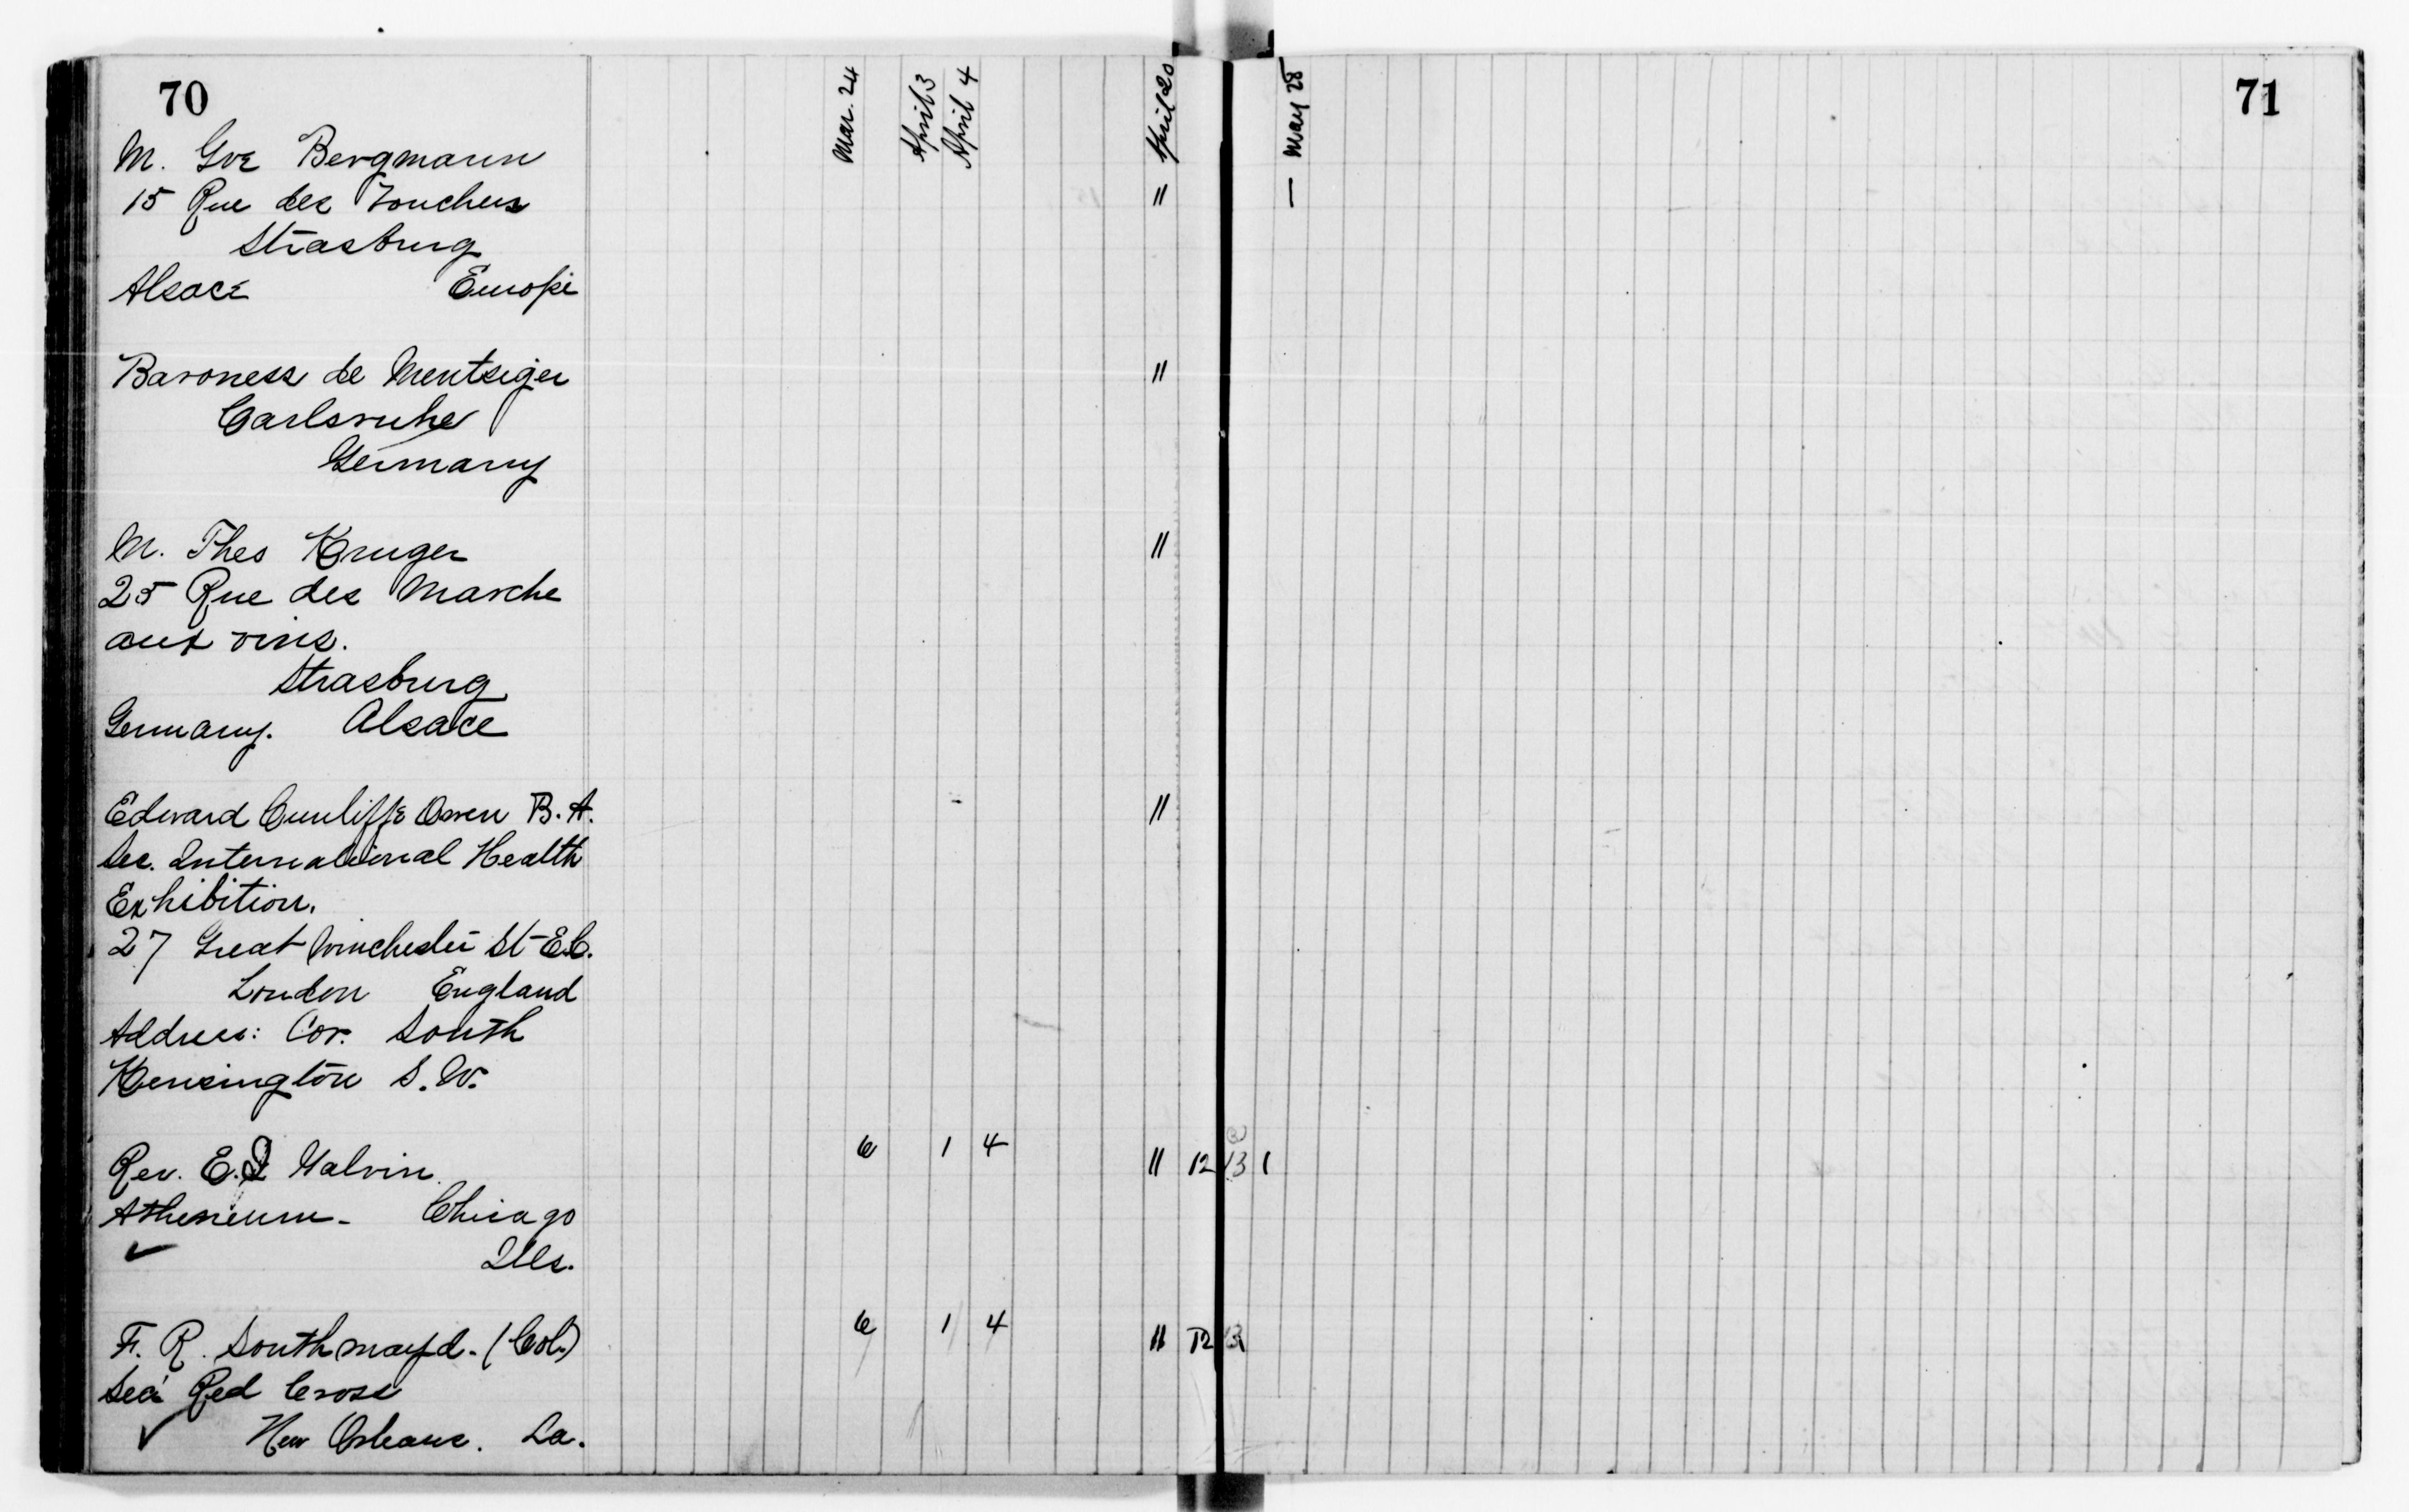 70
Mar. 24 April 3 April 4 April 20 — May 28
71
M. Gve Bergmann
15 Rue des
" —
Strasburg
Alsace Europe
Baroness de Mentziger "
Carlsruhe
Germany
M. Thes Kruger "
25 Rue des Marche
aux vins.
Strasburg
Germany. Alsace
Edward Cunliffe Owen B. A. "
Sec. International Health
Exhibition.
27 Great Winchester St E.C.
London England
Address: Cor. South
Kensington S. W.
Rev. E. I Galvin 6 1 4 11 12 13 1
Atheneum - Chicago
✓ Ills.
F. R. Southmayd. (Col.) 6 1 4 11 12 13
Sec. Red Cross
✓ New Orleans. La.